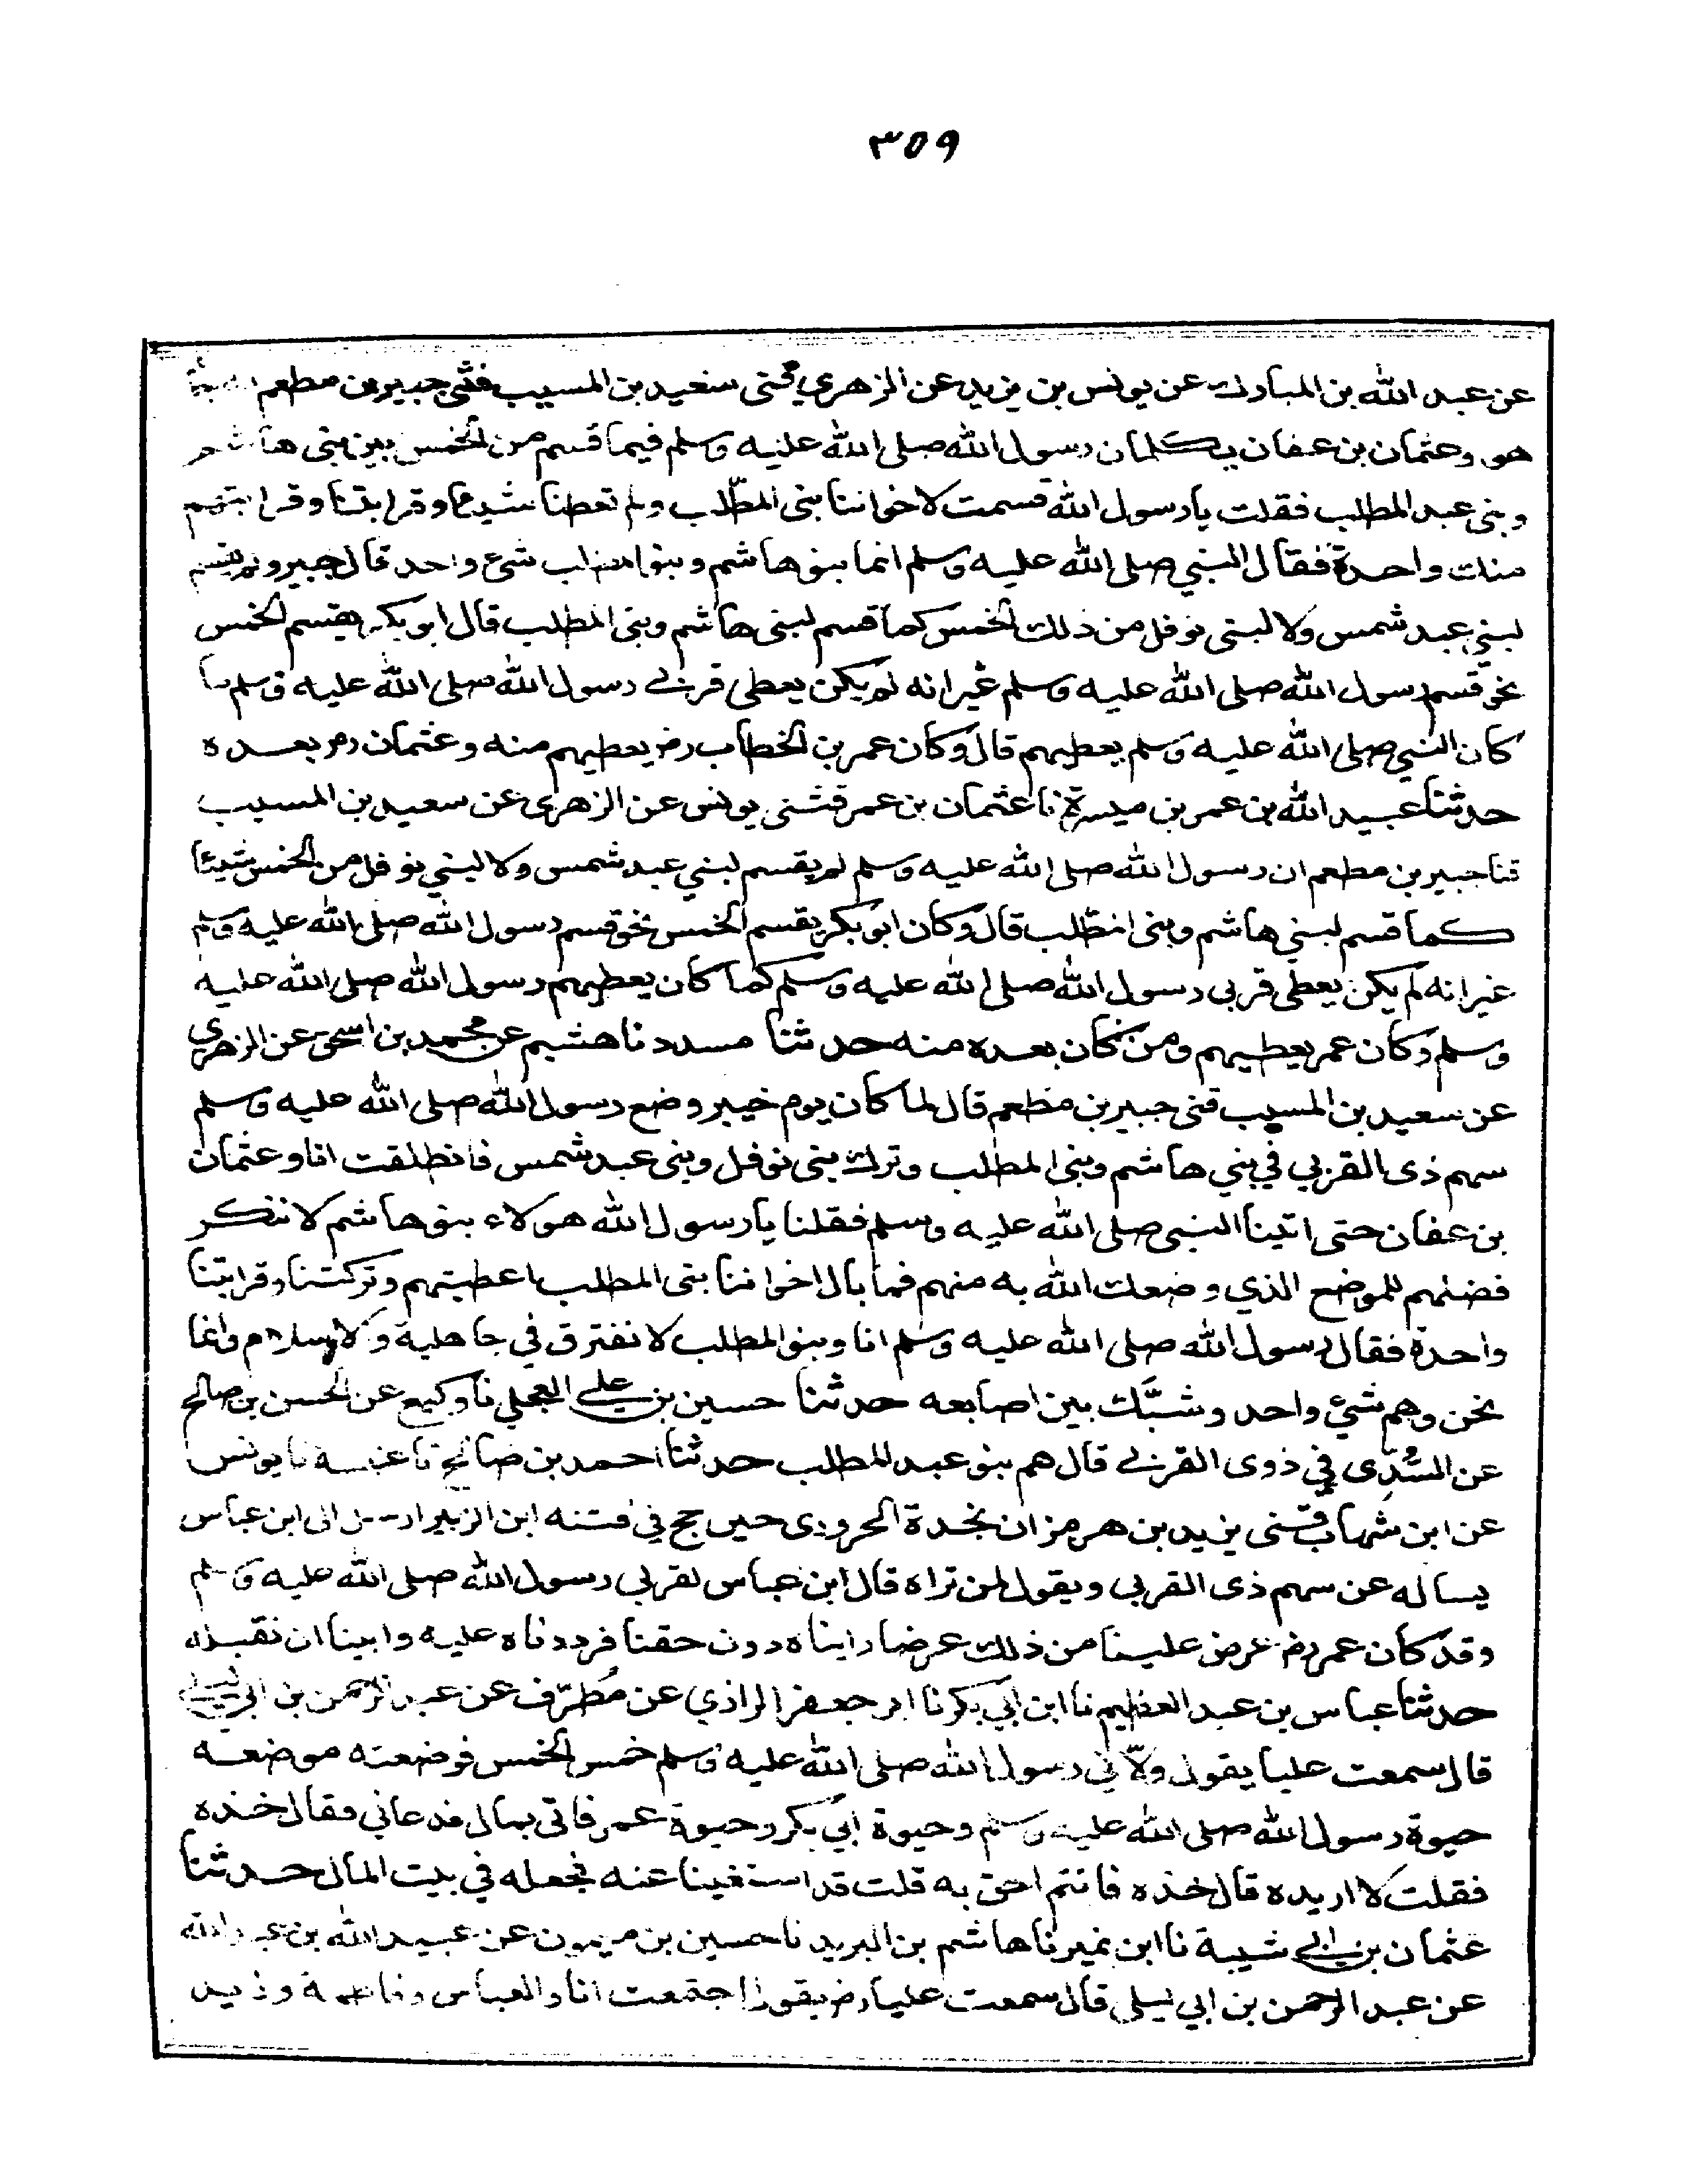 ٣٥٩
عن عبد الله بن المبارك عن يونس بن يزيد عن الزهري قثنى سعيد بن المسيب قثنى جبير بن مطعم
هو وعثمان بن عفان يكلمان رسول الله صلى الله عليه وسلم فيما قسم من الخمس بين بنى هاشم
وبنى عبد المطلب فقلت يا رسول الله قسمت لاخواننا بنى المطلب ولم تعطنا شيئا وقرابتنا وقرابتهم
منك واحدة فقال النبي صلى الله عليه وسلم انما بنو هاشم وبنو المطلب شئ واحد قال جبير ولم يقسم
لبنى عبد شمس ولا لبنى نوفل من ذلك الخمس كما قسم لبنى هاشم وبنى المطلب قال ابو بكر يقسم الخمس
نحو قسم رسول الله صلى الله عليه وسلم غير انه لم يكن يعطى قربى رسول الله صلى الله عليه وسلم ما
كان النبي صلى الله عليه وسلم يعطيهم قال وكان عمر بن الخطاب رض يعطيهم منه وعثمان رض بعده
حدثنا عبيد الله بن عمر بن ميسرة نا عثمان بن عمر قثنى يونس عن الزهرى عن سعيد بن المسيب
قنا جبير بن مطعم ان رسول الله صلى الله عليه وسلم لم يقسم لبني عبد شمس ولا لبني نوفل من الخمس شيئا
كما قسم لبني هاشم وبنى المطلب قال وكان ابو بكر يقسم الخمس نحو قسم رسول الله صلى الله عليه وسلم
غير انه لم يكن يعطى قربى رسول الله صلى الله عليه وسلم كما كان يعطيهم رسول الله صلى الله عليه
وسلم وكان عمر يعطيهم ومن كان بعده منه حدثنا مسدد نا هشيم عن محمد بن اسحق عن الزهري
عن سعيد بن المسيب قثنى جبير بن مطعم قال لما كان يوم خيبر وضع رسول الله صلى الله عليه وسلم
سهم ذى القربى في بني هاشم وبنى المطلب وترك بنى نوفل وبنى عبد شمس فانطلقت انا وعثمان
بن عفان حتى اتينا النبي صلى الله عليه وسلم فقلنا يا رسول الله هولاء بنو هاشم لا ننكر
فضلهم للموضع الذي وضعك الله به منهم فما بال اخواننا بنى المطلب اعطيتهم وتركتنا وقرابتنا
واحدة فقال رسول الله صلى الله عليه وسلم انا وبنو المطلب لا نفترق في جاهلية ولا اسلام وانما
نحن وهم شئ واحد وشبَّك بين اصابعه حدثنا حسين بن علي العجلي نا وكيع عن الحسن بن صالح
عن السُّدِّى في ذوى القربى قال هم بنو عبد المطلب حدثنا احمد بن صالح نا عنبسة نا يونس
عن ابن شهاب قثنى يزيد بن هرمز ان نجدة الحرورى حين حج في فتنه ابن الزبير ارسل الى ابن عباس
يساله عن سهم ذى القربى ويقول لمن تراه قال ابن عباس لقربى رسول الله صلى الله عليه وسلم
وقد كان عمر رض عرض علينا من ذلك عرضا راينا ه دون حقنا فرددناه عليه وابينا ان نقبله
حدثنا عباس بن عبد العظيم نا ابن ابي بكر نا ابو جعفر الرازي عن مُطرّف عن عبد الرحمن بن ابي ليلى
قال سمعت عليا يقول ولّاني رسول الله صلى الله عليه وسلم خمس الخمس فوضعته موضعه
حيوة رسول الله صلى الله عليه وسلم وحيوة ابي بكر وحيوة عمر فاتى بمال فدعاني فقال خذه
فقلت لا اريده قال خذه فانتم احق به قلت قد استغنينا عنه فجعله في بيت المال حدثنا
عثمان بن ابى شيبة نا ابن نمير نا هاشم بن البريد نا حسين بن ميمون عن عبيد الله بن عبد الله
عن عبد الرحمن بن ابي ليلى قال سمعت عليا رض يقول اجتمعت انا والعباس وفاطمة وزيد